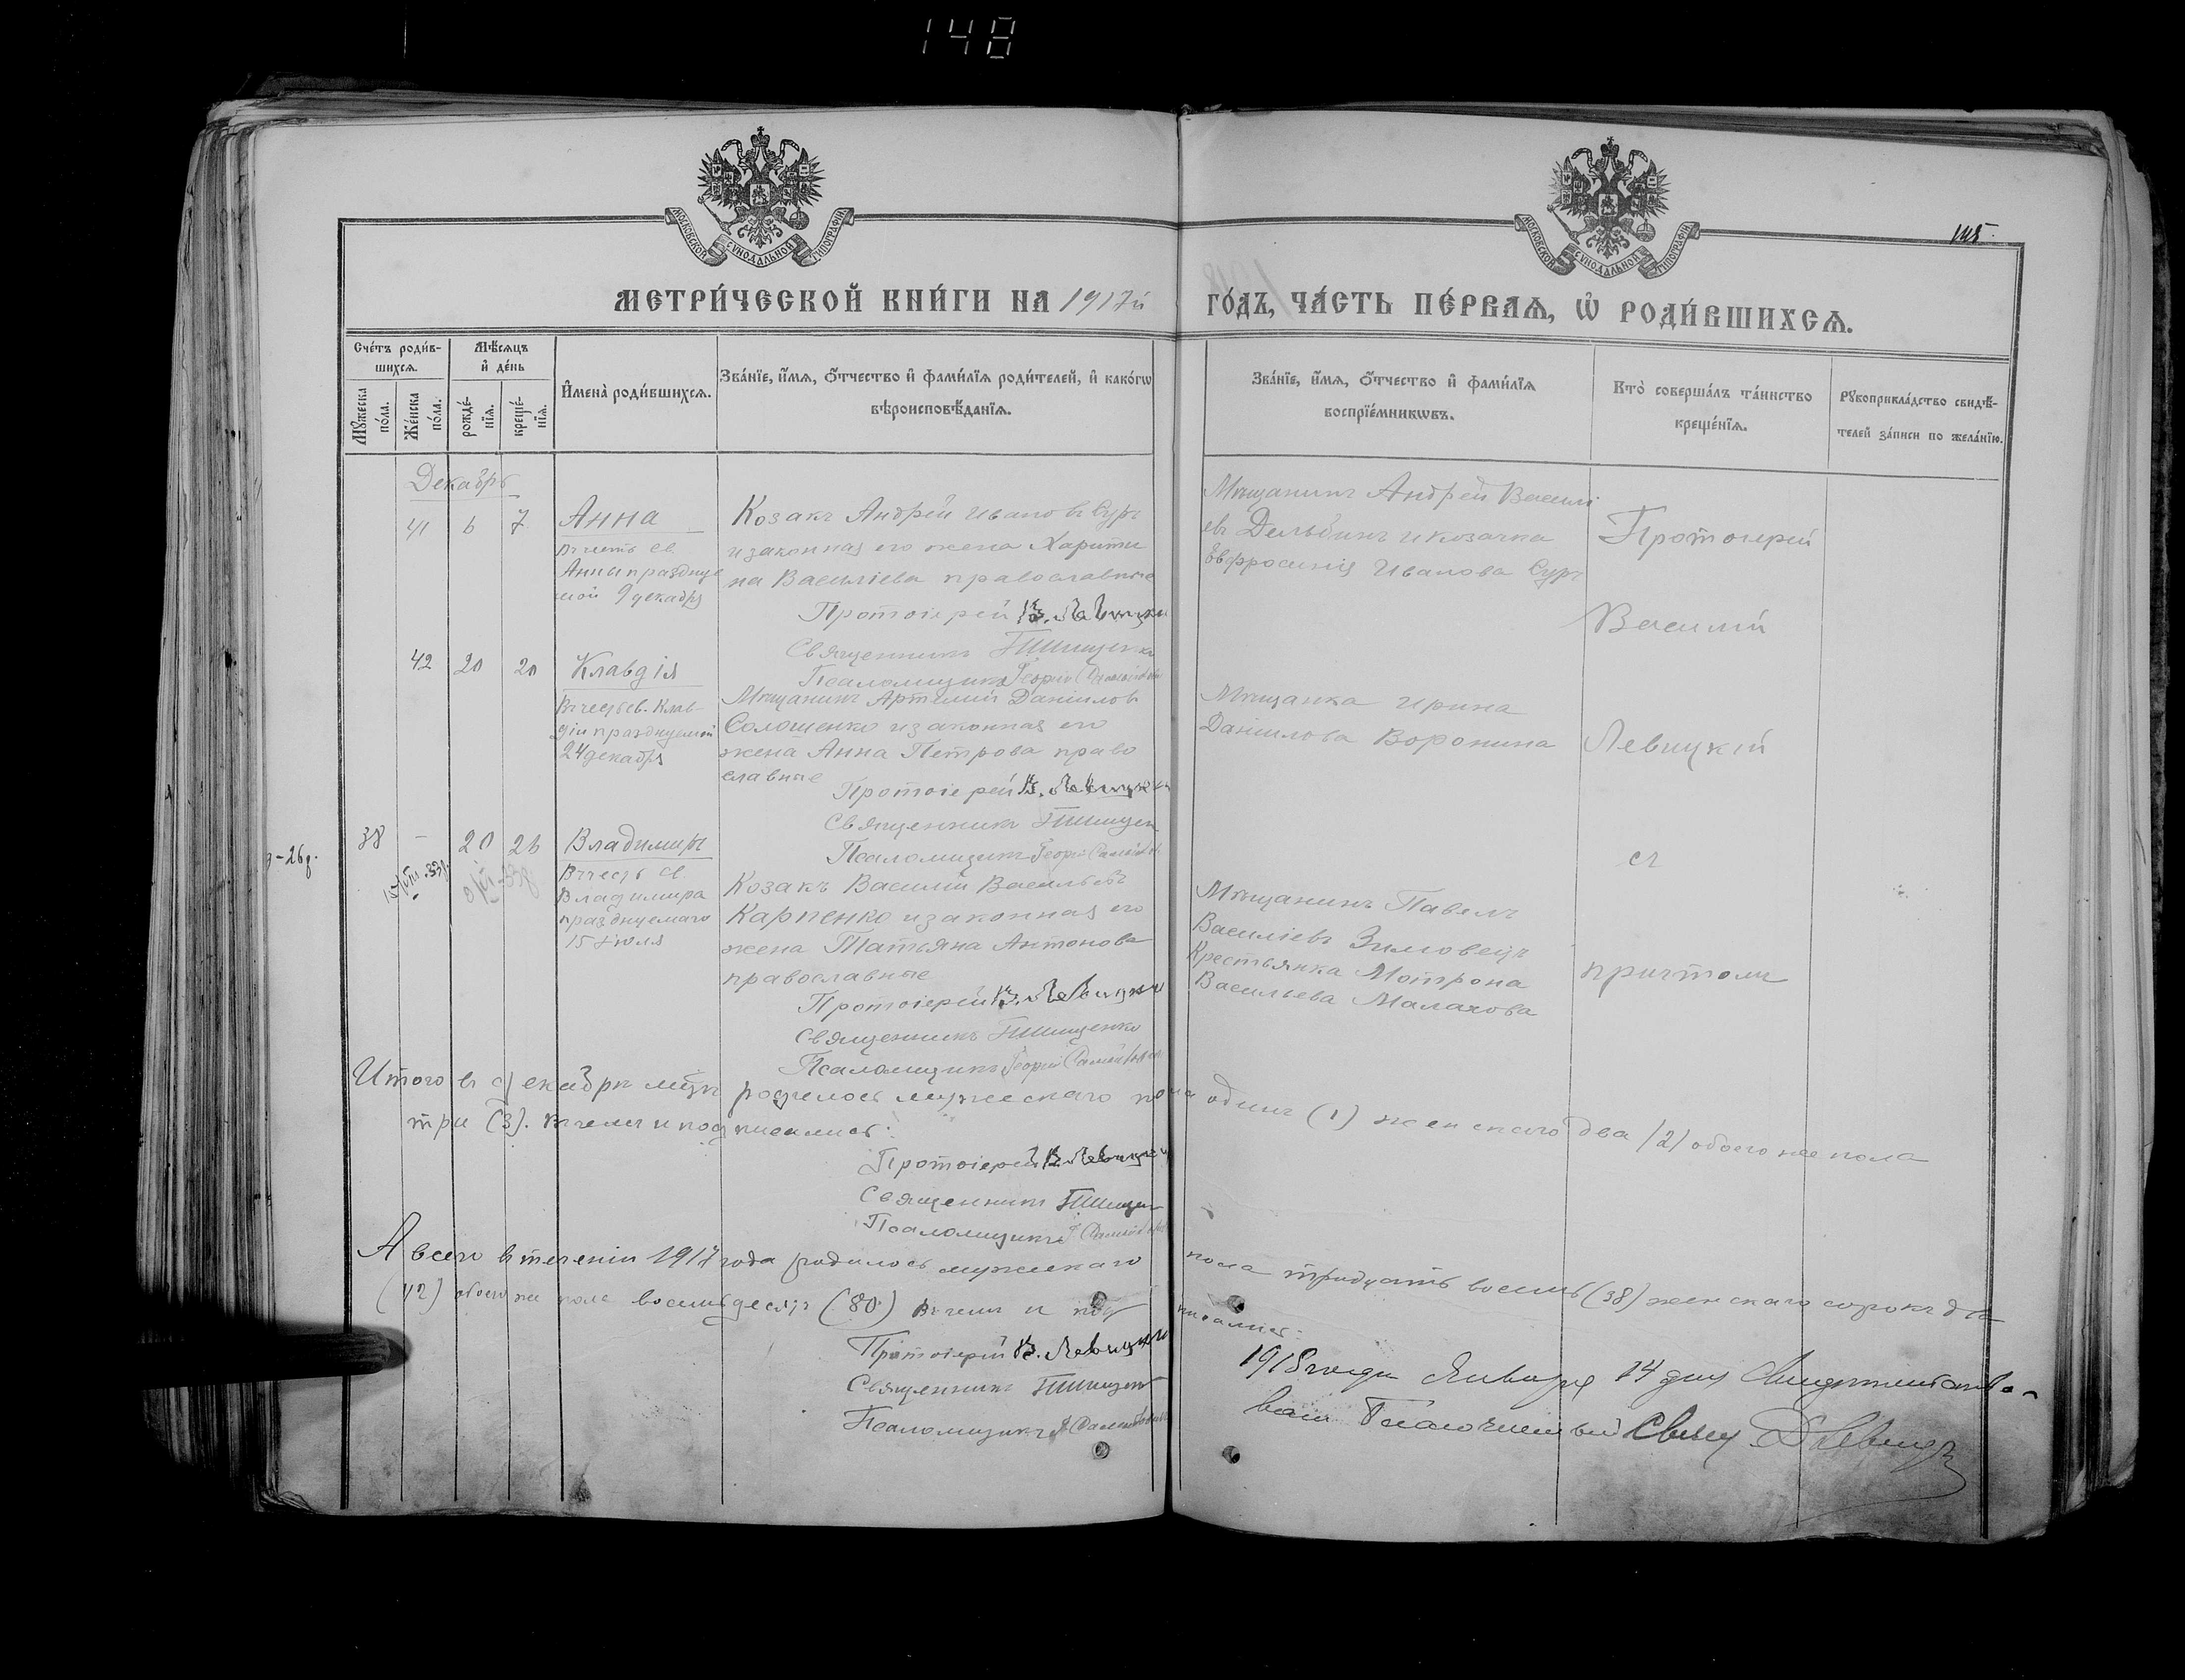 148
МОСКОВСКОЙ СѴНОДАЛЬНОЙ ТИПОГРАФІИ
МОСКОВСКОЙ СѴНОДАЛЬНОЙ ТИПОГРАФІИ
145.
МЕТРИ́ЧЕСКОЙ КНИ́ГИ НА 1917й ГО́ДЪ, ЧА́СТЬ ПЕ́РВАѦ, Ѡ҆ РОДИ́ВШИХСѦ.
Сче́тъ роди́в-
шихсѧ.
Мꙋ́жеска по́ла.
Же́нска по́ла.
Мѣ́сѧцъ
и҆ де́нь
рожде́-
нїѧ.
креще́-
нїѧ.
И҆мена̀ роди́вшихсѧ.
Зва́нїе, и҆́мѧ, ѻ҆́тчество и҆ фами́лїѧ роди́телей, и҆ како́гѡ
вѣроисповѣ́данїѧ.
Зва́нїе, и҆́мѧ, ѻ҆́тчество и҆ фами́лїѧ
воспрїе́мникѡвъ.
Кто̀ соверша́лъ та́инство
креще́нїѧ.
Рꙋкоприкла́дство свидѣ́-
телей за́писи по жела́нїю.
Декабрь
41 6 7 Анна
въ честь св.
Анны празднуе
мой 9 декабря
Козакъ Андрей Ивановъ Сург
и законная его жена Харити
на Василіева православные
Протоіерей В. Левицкій
Священникъ
Псаломщикъ Георгій
Мѣщанинъ Андрей Василі
евъ Дельбинъ и козачка
Евфросинія Иванова Сург
Протоіерей
Василій
Левицкій
съ
причтомъ
42 20 20 Клавдія
Въ честь св. Клав-
діи празднуемой
24 декабря
Мѣщанинъ Артемій Даніиловъ
Солошенко и законная его
жена Анна Петрова право
славные
Протоіерей В. Левицкій
Священникъ
Псаломщикъ Георгій
Мѣщанка Ирина
Даніилова Воронина
38 - 20 26 Владимиръ
Въ честь св
Владимира
празднуемаго
15 Іюля
Козакъ Василій Васильевъ
Карпенко и законная его
жена Татьяна Антонова
православные
Протоіерей В. Левицкій
Священникъ
Псаломщикъ Георгій
Мѣщанинъ Павелъ
Василіевъ Зимовецъ
Крестьянка Мотрона
Васильева Малахова
Итого въ декабрѣ мѣсц родилось мужескаго пола одинъ (1) женскаго два (2) обоего же пола
три (3). въ чемъ и подписались:
Протоіерей В. Левицкій
Священникъ
Псаломщикъ
А всего въ теченіи 1917 года родилось мужескаго пола тридцать восемь (38) женскаго сорокъ два
(42) обоего же пола восемьдесятъ (80) въ чемъ и подписались:
Протоіерей В. Левицкій
Священникъ
Псаломщикъ
1918 года Января 14 дня
Благочинный Свящ